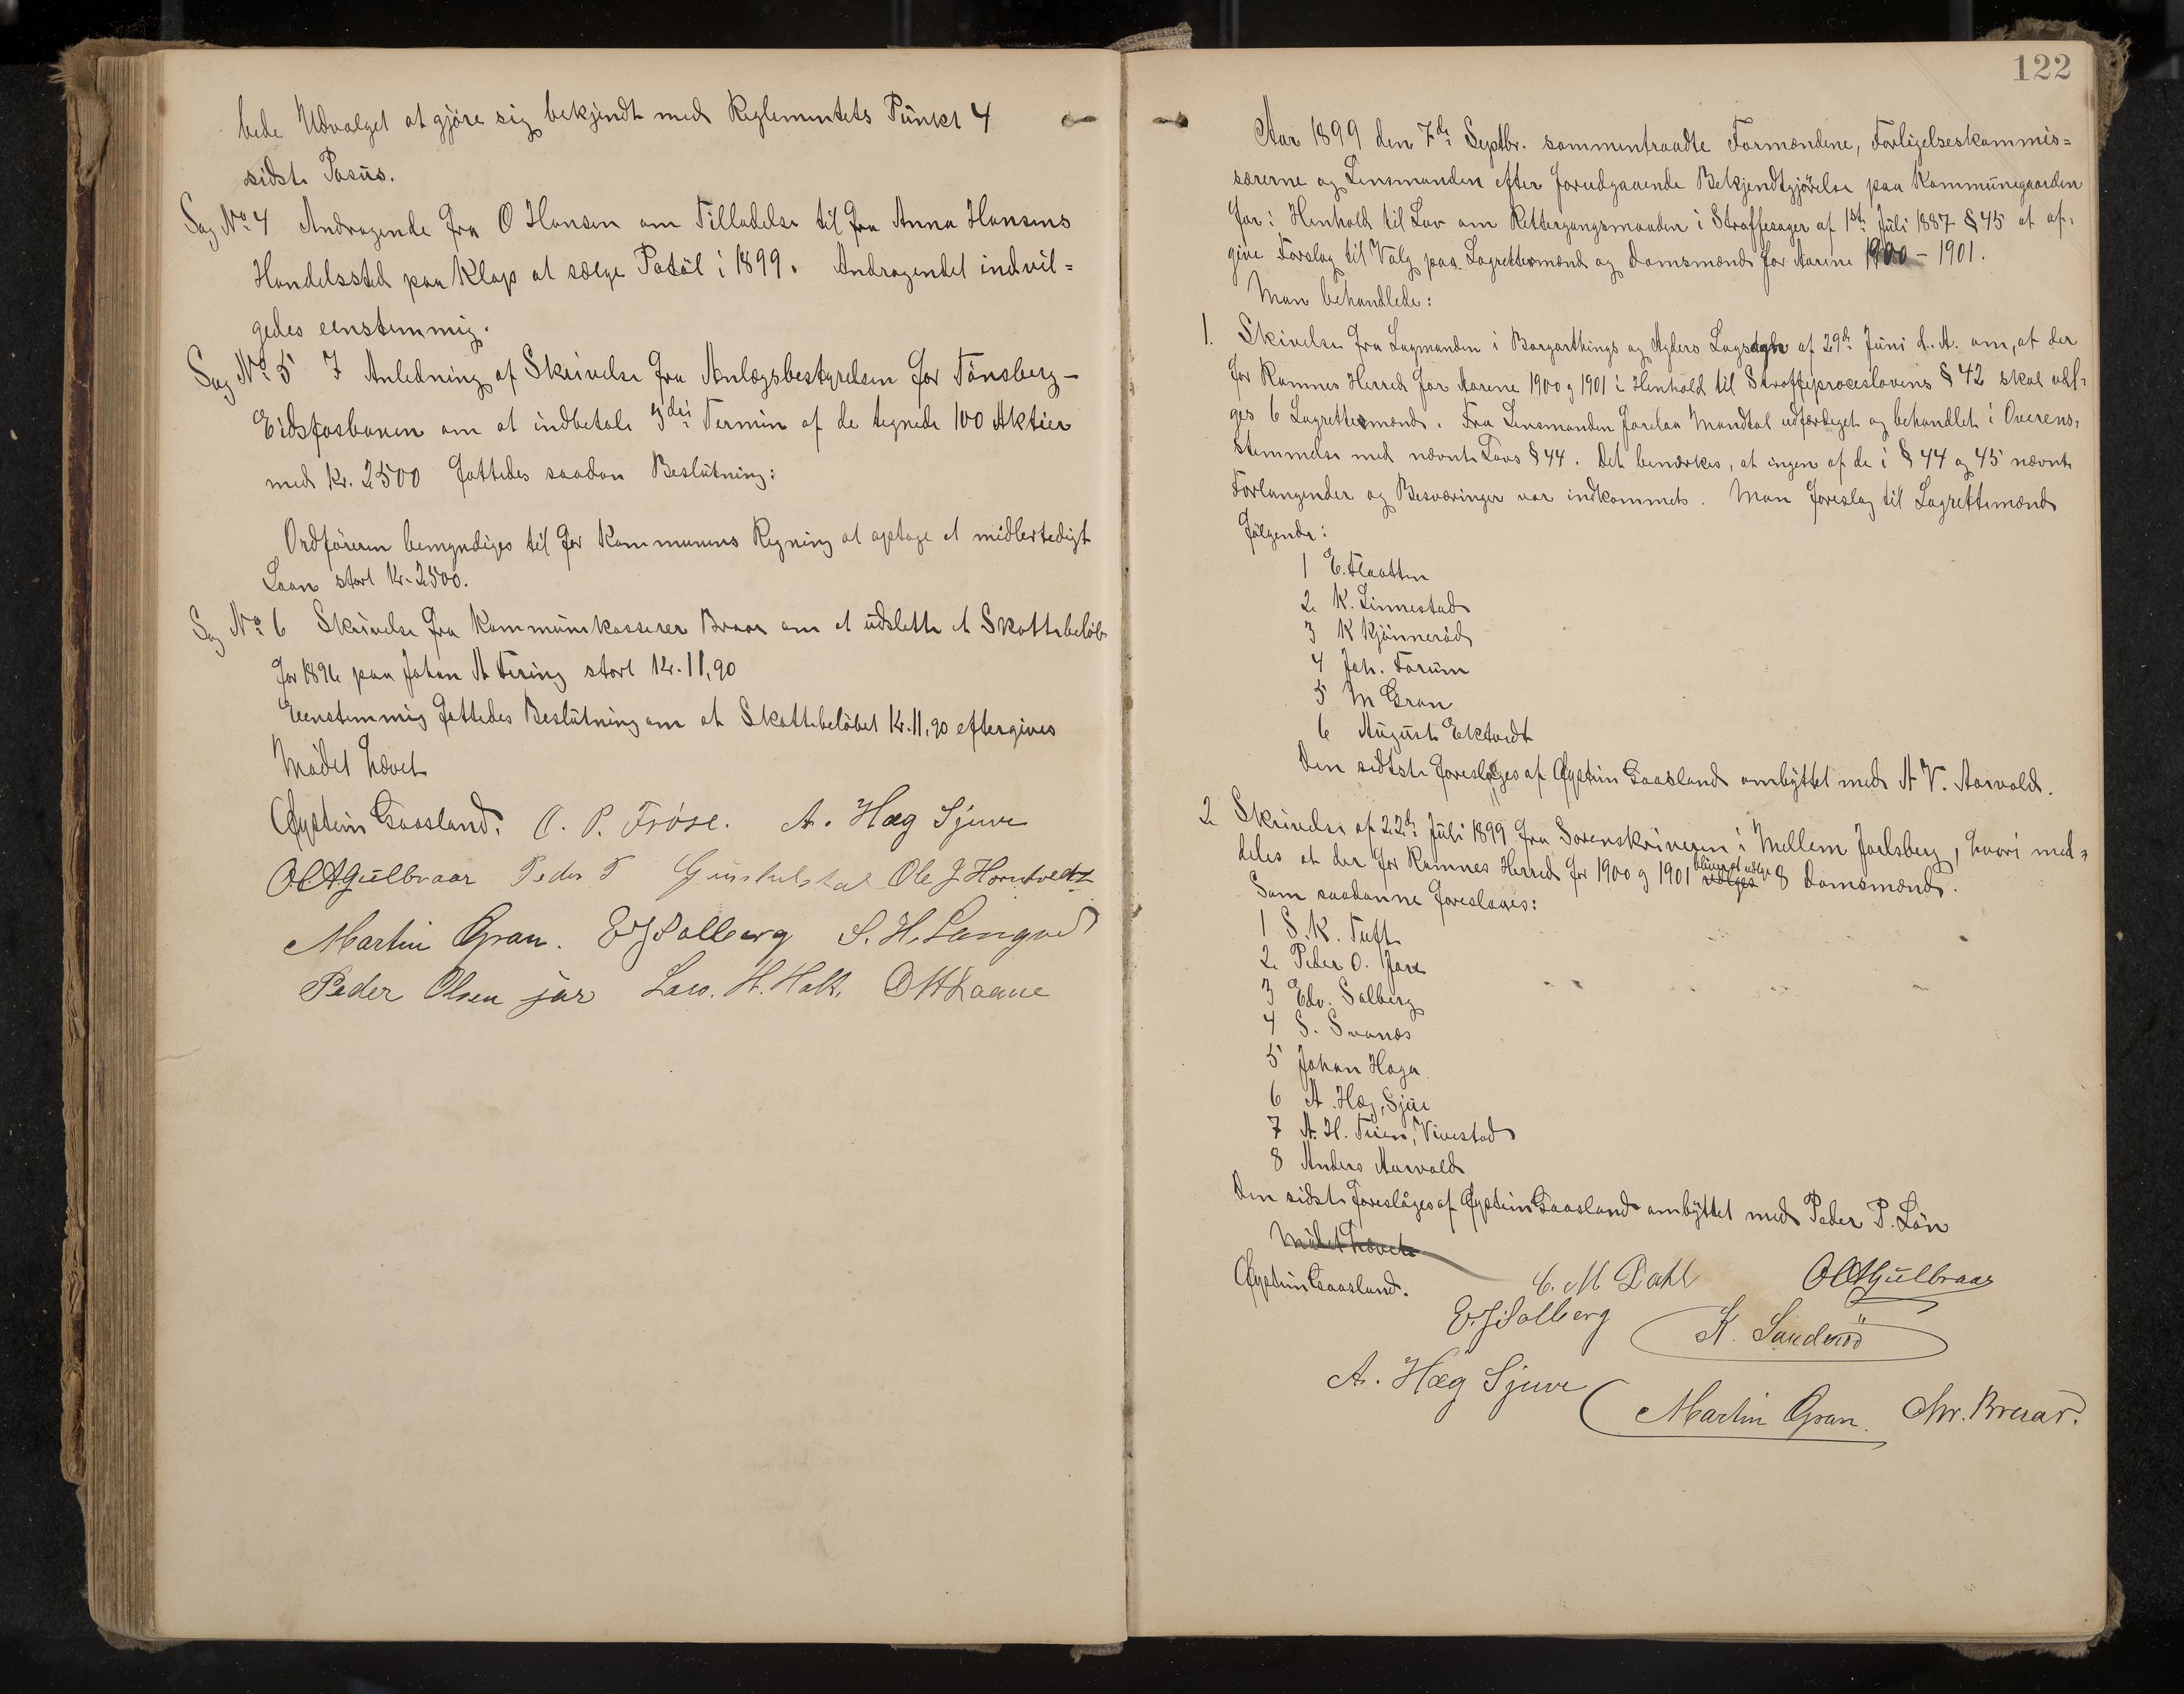 bede Udvalget at gjöre sig bekjendt med Reglementets Punkt 4
sidste Pasus.
Sag No 4 Andragende fra O Hansen om Tilladelse til fra Anna Hansens
Handelssted paa Klop at sælge Patöl i 1899. Andragendet indvil=
gedes eenstemmig.
Sag No 5 I Anledning af Skrivelse fra Anlægsbestyrelsen for Tönsberg-
Eidsfosbanen om at indbetale 3die Termin af de tegnede 100 Aktier
med Kr. 2500 fattedes saadan Beslutning:
Ordföreren bemyndiges til for Kommunens Regning at optage et midlertidigt
Laan stort Kr. 2500.
Sag No 6 Skrivelse fra Kommunekasserer Braar om at udslette et Skattebelöb
for 1896 paa Johan A Firing stort Kr. 11,90
Eenstemmig fattedes Beslutning om at Skattebelöbet Kr. 11,90 eftergives
Mödet hævet
Øystein Gaasland. O. P. Fröse. A. Hæg Sjuve
Ol. A Gulbraar Peder T Ole J Horntvedt
Martin Gran. E J Solberg S. H. Langved
Peder Olsen jar H. Holt.
122
Aar 1899 den 7de Septbr. sammentraadte Formændene, Forligelseskommis=
særerne og Lensmanden efter forudgaaende Bekjendtgjörelse paa Kommunegaarden
for i Henhold til Lov om Rettergangsmaaden i Straffesager af 1ste Juli 1887 § 45 at af=
give Forslag til Valg paa Lagrettesmænd og Domsmænd for Aarene 1900 - 1901.
Man behandlede:
1. Skivelse fra Lagmanden i Borgarthings og Agders Lagsogn af 29de Juni d. A. om, at der
for Ramnes Herred for Aarene 1900 og 1901 i Henhold til Straffeproceslovens § 42 skal udl=
ges 6 Lagrettesmænd. Fra Lensmanden forelaa Mandtal udfærdiget og behandlet i Overens=
stemmelse med nævnte Lovs § 44. Det bemærkes, at ingen af de i § 44 og 45 nævnte
Forlangender og Besværinger var indkommet. Man foreslog til Lagrettemænd
fölgende:
1 E. Flaatten
2 K. Linnestad
3 K Kjönneröd
4 Joh. Forum
5 M Gran
6 August Ektvedt
Den sidste foreslåges af Øystein Gaasland ombyttet med A V. Aarvold.
2 Skrivelse af 22de Juli 1899 fra Sorenskriveren i Mellem Jarlsberg, hvori med=
deles at der for Ramnes Herred for 1900 og 1901 bliver at udlge udlges 8 Domsmænd.
Som saadanne foreslaaes:
1 S. K. Tufte
2 Peder O. Jare
3 Edv. Solberg
4 S. Svanæs
5 Johan Haga
6 A. Hæg, Sjue
7 A. H. Teien, Vivestad
8 Anders Aarvold
Den sidste foreslåges af Øystein Gaasland ombyttet med Peder P. Lön
Mödet hævet
Øystein Gaasland. C. M Dahl Ol A Gulbraar
E J Solberg K. Sanderöd
A. Hæg Sjuve Martin Gran. Chr. Breiar.